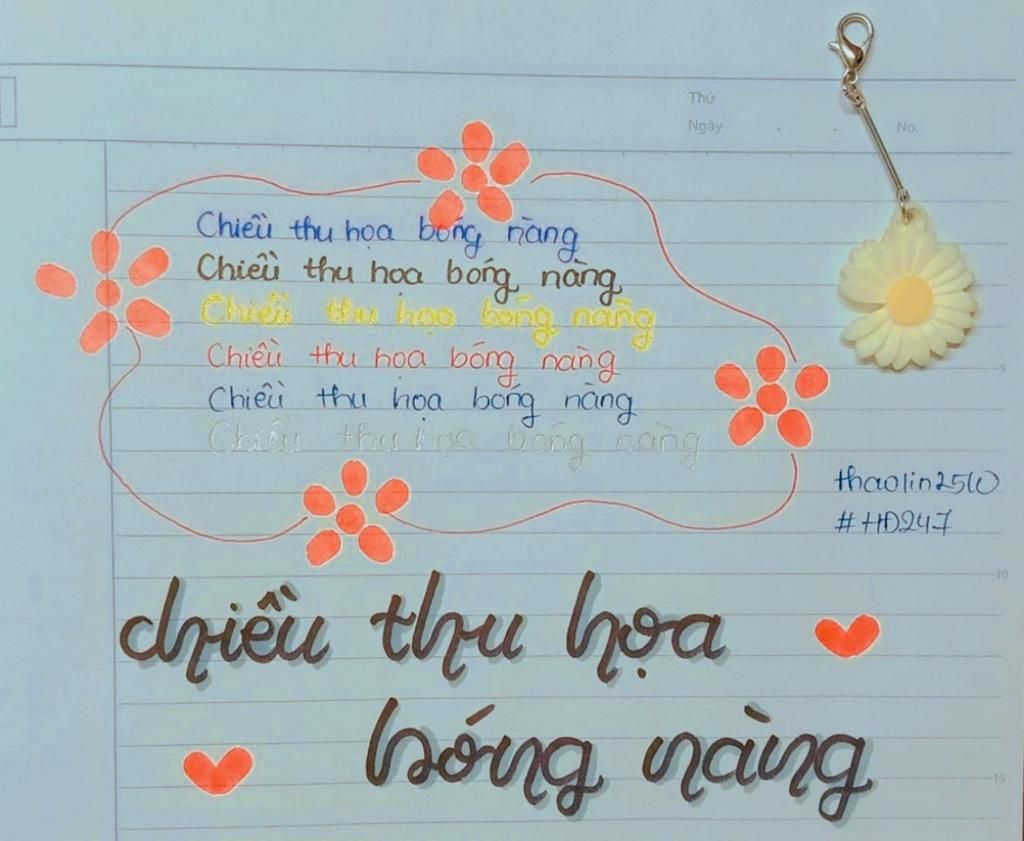 Thứ
Ngày . . No.
Chiều thu họa bóng nàng
Chiều thu họa bóng nàng
Chiều thu họa bóng nàng
Chiều thu họa bóng nàng
Chiều thu họa bóng nàng
Chiều thu họa bóng nàng
5
thaolin2510
#HĐ247
10
chiều thu họa
bóng nàng
15